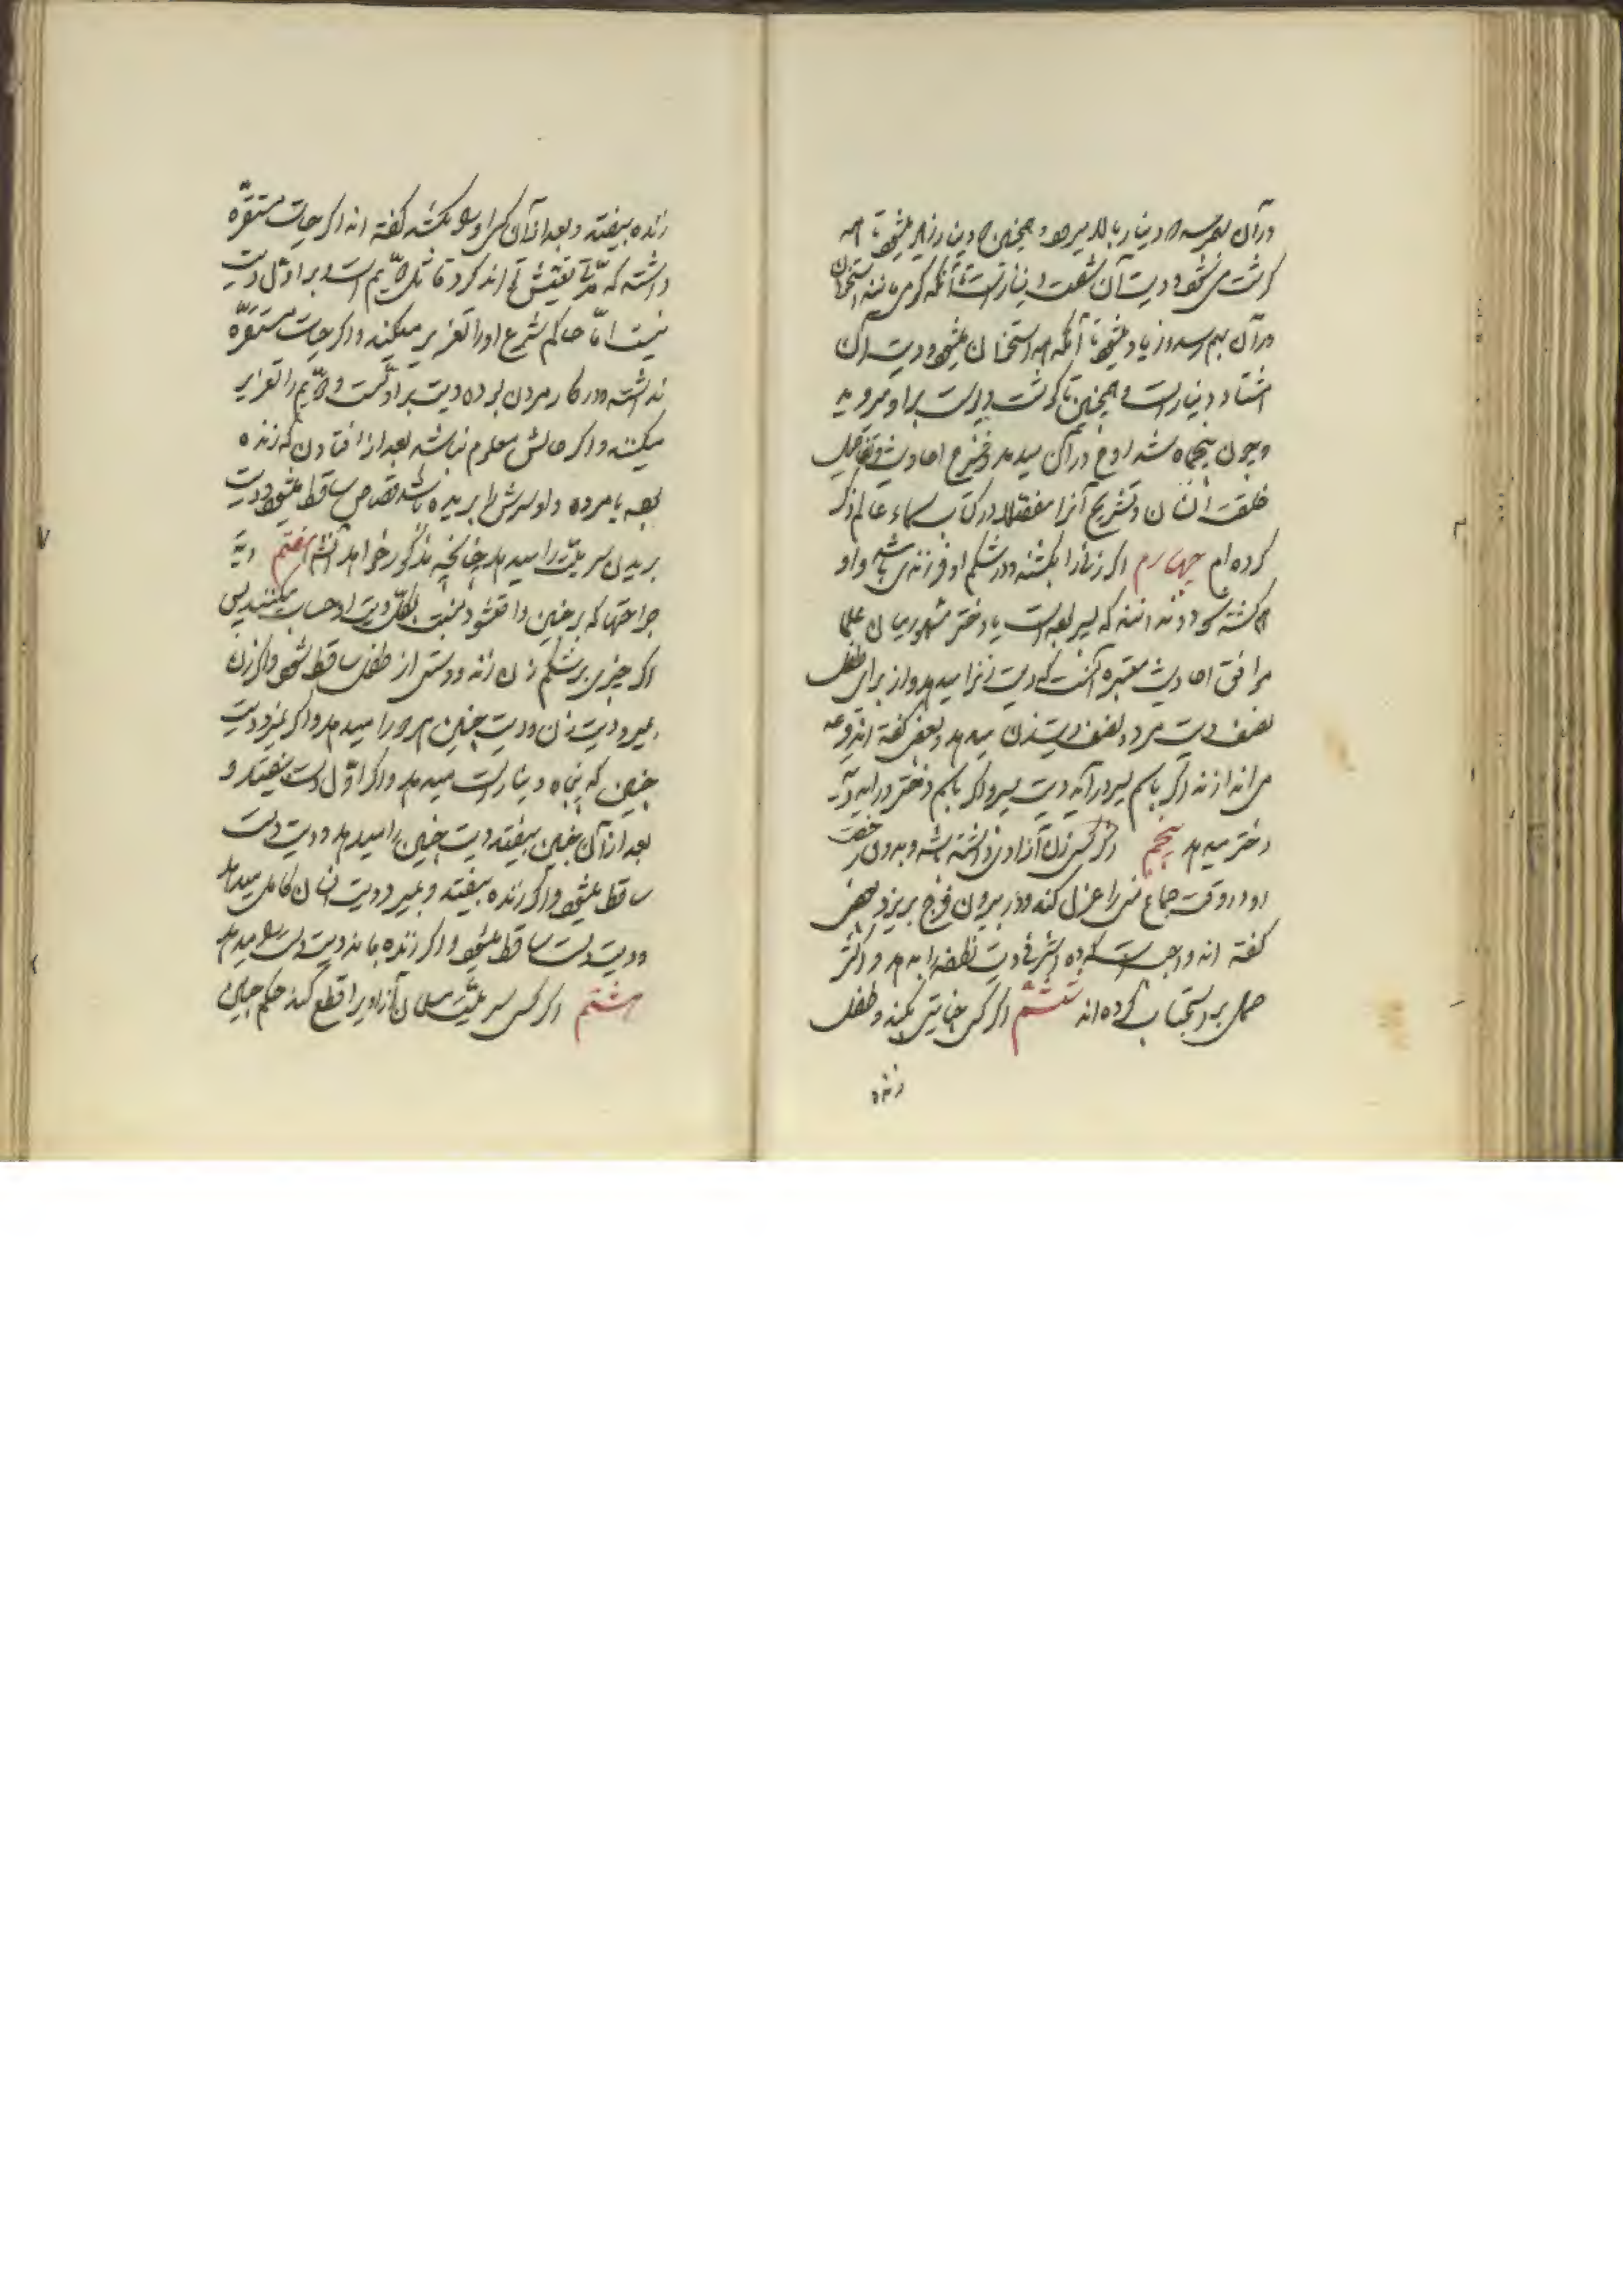 درآن بهمرسد دو دینار بالا میرود و همچنین دو دینار زیاد میشود تا همه
گوشت می‌شود و دیت آن شصت دینار است تا آنکه گرهی مانند استخوان
درآن بهم رسد و زیاد میشود تا آنکه همه استخوان میشود و دیت آن
هشتاد دینار است و همچنین تا گوشت و پوست بر او میروید
و چون پنجماه شد روح در آن میدمد و شرح احادیث و تفاصیل
خلقت انسان و تشریح آنرا مفصلا در کتاب سماء عالم ذکر
کرده‌ام چهارم اگر زنی را بکشند و در شکم او فرزندی باشد و او
هم کشته شود و ندانند که پسر بوده است یا دختر مشهور میان علما
موافق احادیث معتبره آنست که دیت زنرا میدهد و از برای طفل
نصف دیت مرد و نصف دیت زن میدهد و بعضی گفته اند قرعه
می اندازند اگر باسم پسر درآید دیت پسر و اگر باسم دختر درآید دیت
دختر میدهد پنجم اگر کسی زن آزادی داشته باشد و بدون رخصت
او در وقت جماع منی را عزل کند و در بیرون فرج بریزد بعضی
گفته اند واجبست که ده اشرفی دیت نطفه را بدهد و اکثر
حمل بر استحباب کرده‌اند ششم اگر کسی جنایتی بکند و طفل
زنده
زنده بیفتد و بعد از آن کسی او را بکشد گفته اند اگر حیات مستقره
داشته که مدتی تعیش تواند کرد قاتل دویم است و بر اول دیت
نیست اما حاکم شرع او را تعزیر میکند و اگر حیات مستقره
نداشته و در کار مردن بوده دیت بر اول است و دویم را تعزیر
میکنند و اگر حالش معلوم نباشد بعد از افتادن که زنده
بوده یا مرده و او سرش را بریده باشد قصاص ساقط میشود و دیت
بریدن سر میت را میدهد چنانچه مذکور خواهد شد هفتم دیه
جراحتها که بر جنین واقع شود بنسبت بکل دیت او حساب میکنند پس
اگر چیزی بر شکم زن زند و دستی از طفل ساقط شود و اگر زن
بمیرد دیت زن و دیت جنین هر دو را میدهد و اگر نمیرد دیت
جنین که پنجاه دینار است میدهد و اگر اول دست بیفتد و
بعد از آن جنین بیفتد دیت جنین را میدهد و دیت دست
ساقط میشود و اگر زنده بیفتد و بمیرد دیت انسان کامل میدهد
و دیت دست ساقط میشود و اگر زنده بماند دیت دست را میدهد
هشتم اگر کسی سر میت مسلمان آزادیرا قطع کند حکم جنین